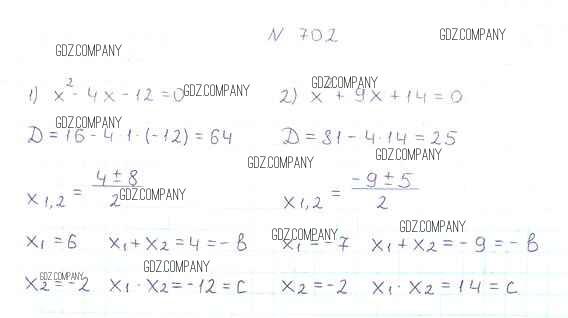 N 702
GDZ.COMPANY GDZ.COMPANY
1) x² - 4x - 12 = 0 GDZ.COMPANY 2) x² + 9x + 14 = 0 GDZ.COMPANY
GDZ.COMPANY
D = 16 - 4 · 1 · (-12) = 64 D = 81 - 4 · 14 = 25
GDZ.COMPANY GDZ.COMPANY
x₁,₂ = (4 ± 8)/2 GDZ.COMPANY x₁,₂ = (-9 ± 5)/2
GDZ.COMPANY GDZ.COMPANY
x₁ = 6 x₁ + x₂ = 4 = - в x₁ = -7 x₁ + x₂ = - 9 = - в
GDZ.COMPANY GDZ.COMPANY
x₂ = -2 x₁ · x₂ = -12 = c x₂ = -2 x₁ · x₂ = 14 = c